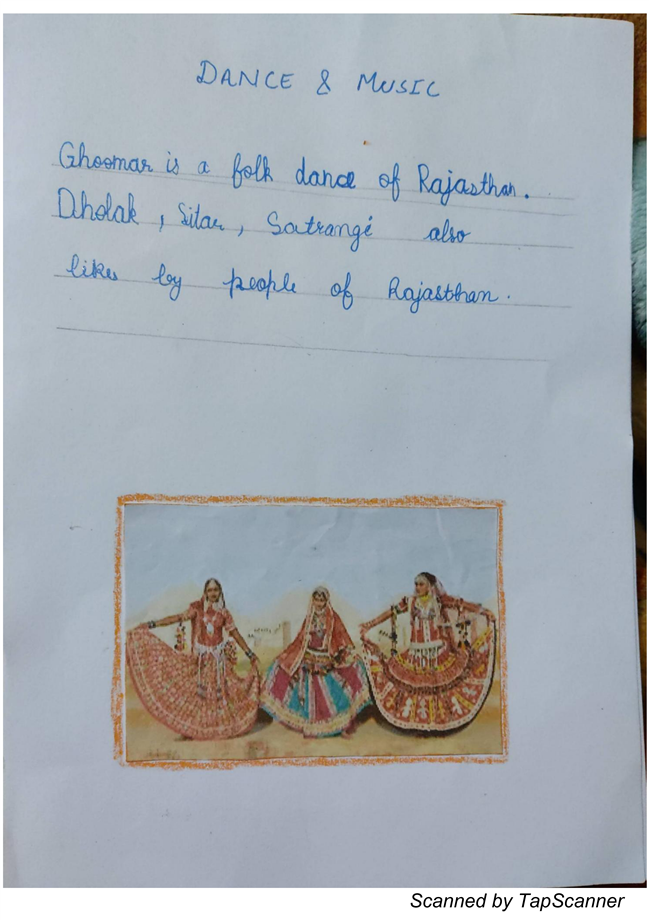 DANCE & MUSIC
Ghoomar is a folk dance of Rajasthan.
Dholak, Sitar, Satrangé also
like by people of Rajasthan.
Scanned by TapScanner